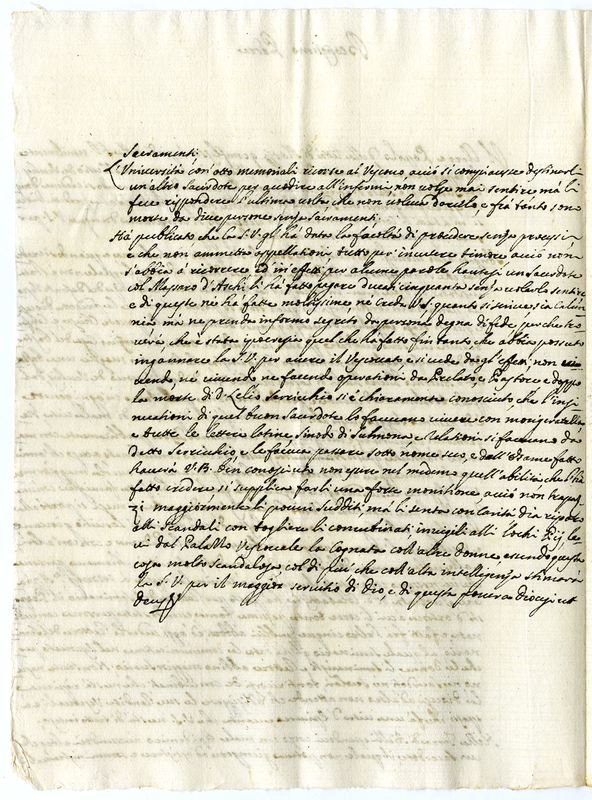 Sacramenti.
L'Università con otto memoriali ricorse al Vescovo, acciò si compiacesse destinarli
un altro Sacerdote per guidare all'infermi non volse mai sentire mà li
fece rispondere l'ultima volta che non voleva darcelo, e frà tanto sono
morte da dieci persone senza Sacramenti.
Hà publicato che la S.V. gli hà data la facoltà di procedere senza
e che non ammetta appellationi, tutto per incutere timore acciò non
s'abbia à ricorrere, ed in effetti per alcune parole havutesi un Sacerdote
col Massaro d'Aschi li hà fatto pagare ducati cinquanta senza volerlo sentire
e di queste ne hà fatte moltissime nè creda V.S. quanto si scrive sia Calun-
nia mà ne prenda informo segreto da persona degna di fede, perche tro-
verà che è stata ipocrisia quel che hà fatto fin tanto che abbia possuto
ingannare la S.V. per avere il Vescovato e si vede dagl'effetti non
nè vivendo, ne facendo operationi da Prelato, e Pastore e doppo
la morte di D. Lelio Serricchio si è chiaramente conosciuto, che l'insi-
nuationi di quel buon Sacerdote lo facevano vivere con
e tutte le lettere latine, Sinodo di Sulmona, e Relationi si facevano da
detto Serricchio, e le faceva passare sotto nome suo, e dall'esame fatto
haverà V.B. ben conosciuto non essere nel medemo quell'abilità che l'hà
fatto credere, si supplica farli una forte monitione acciò non
maggiormente li poveri sudditi mà li senta con carità dia riparo
alli scandali con togliere li concubinati invigili alli lochi Pij le-
vi dal Palazzo Vescovale la Cognata coll'altre donne essendo questa
cosa molto scandalosa col di più che coll'alta intelligenza stimarà
la S.V. per il maggior servitio di Dio, e di questa povera diocesi ut
Deus